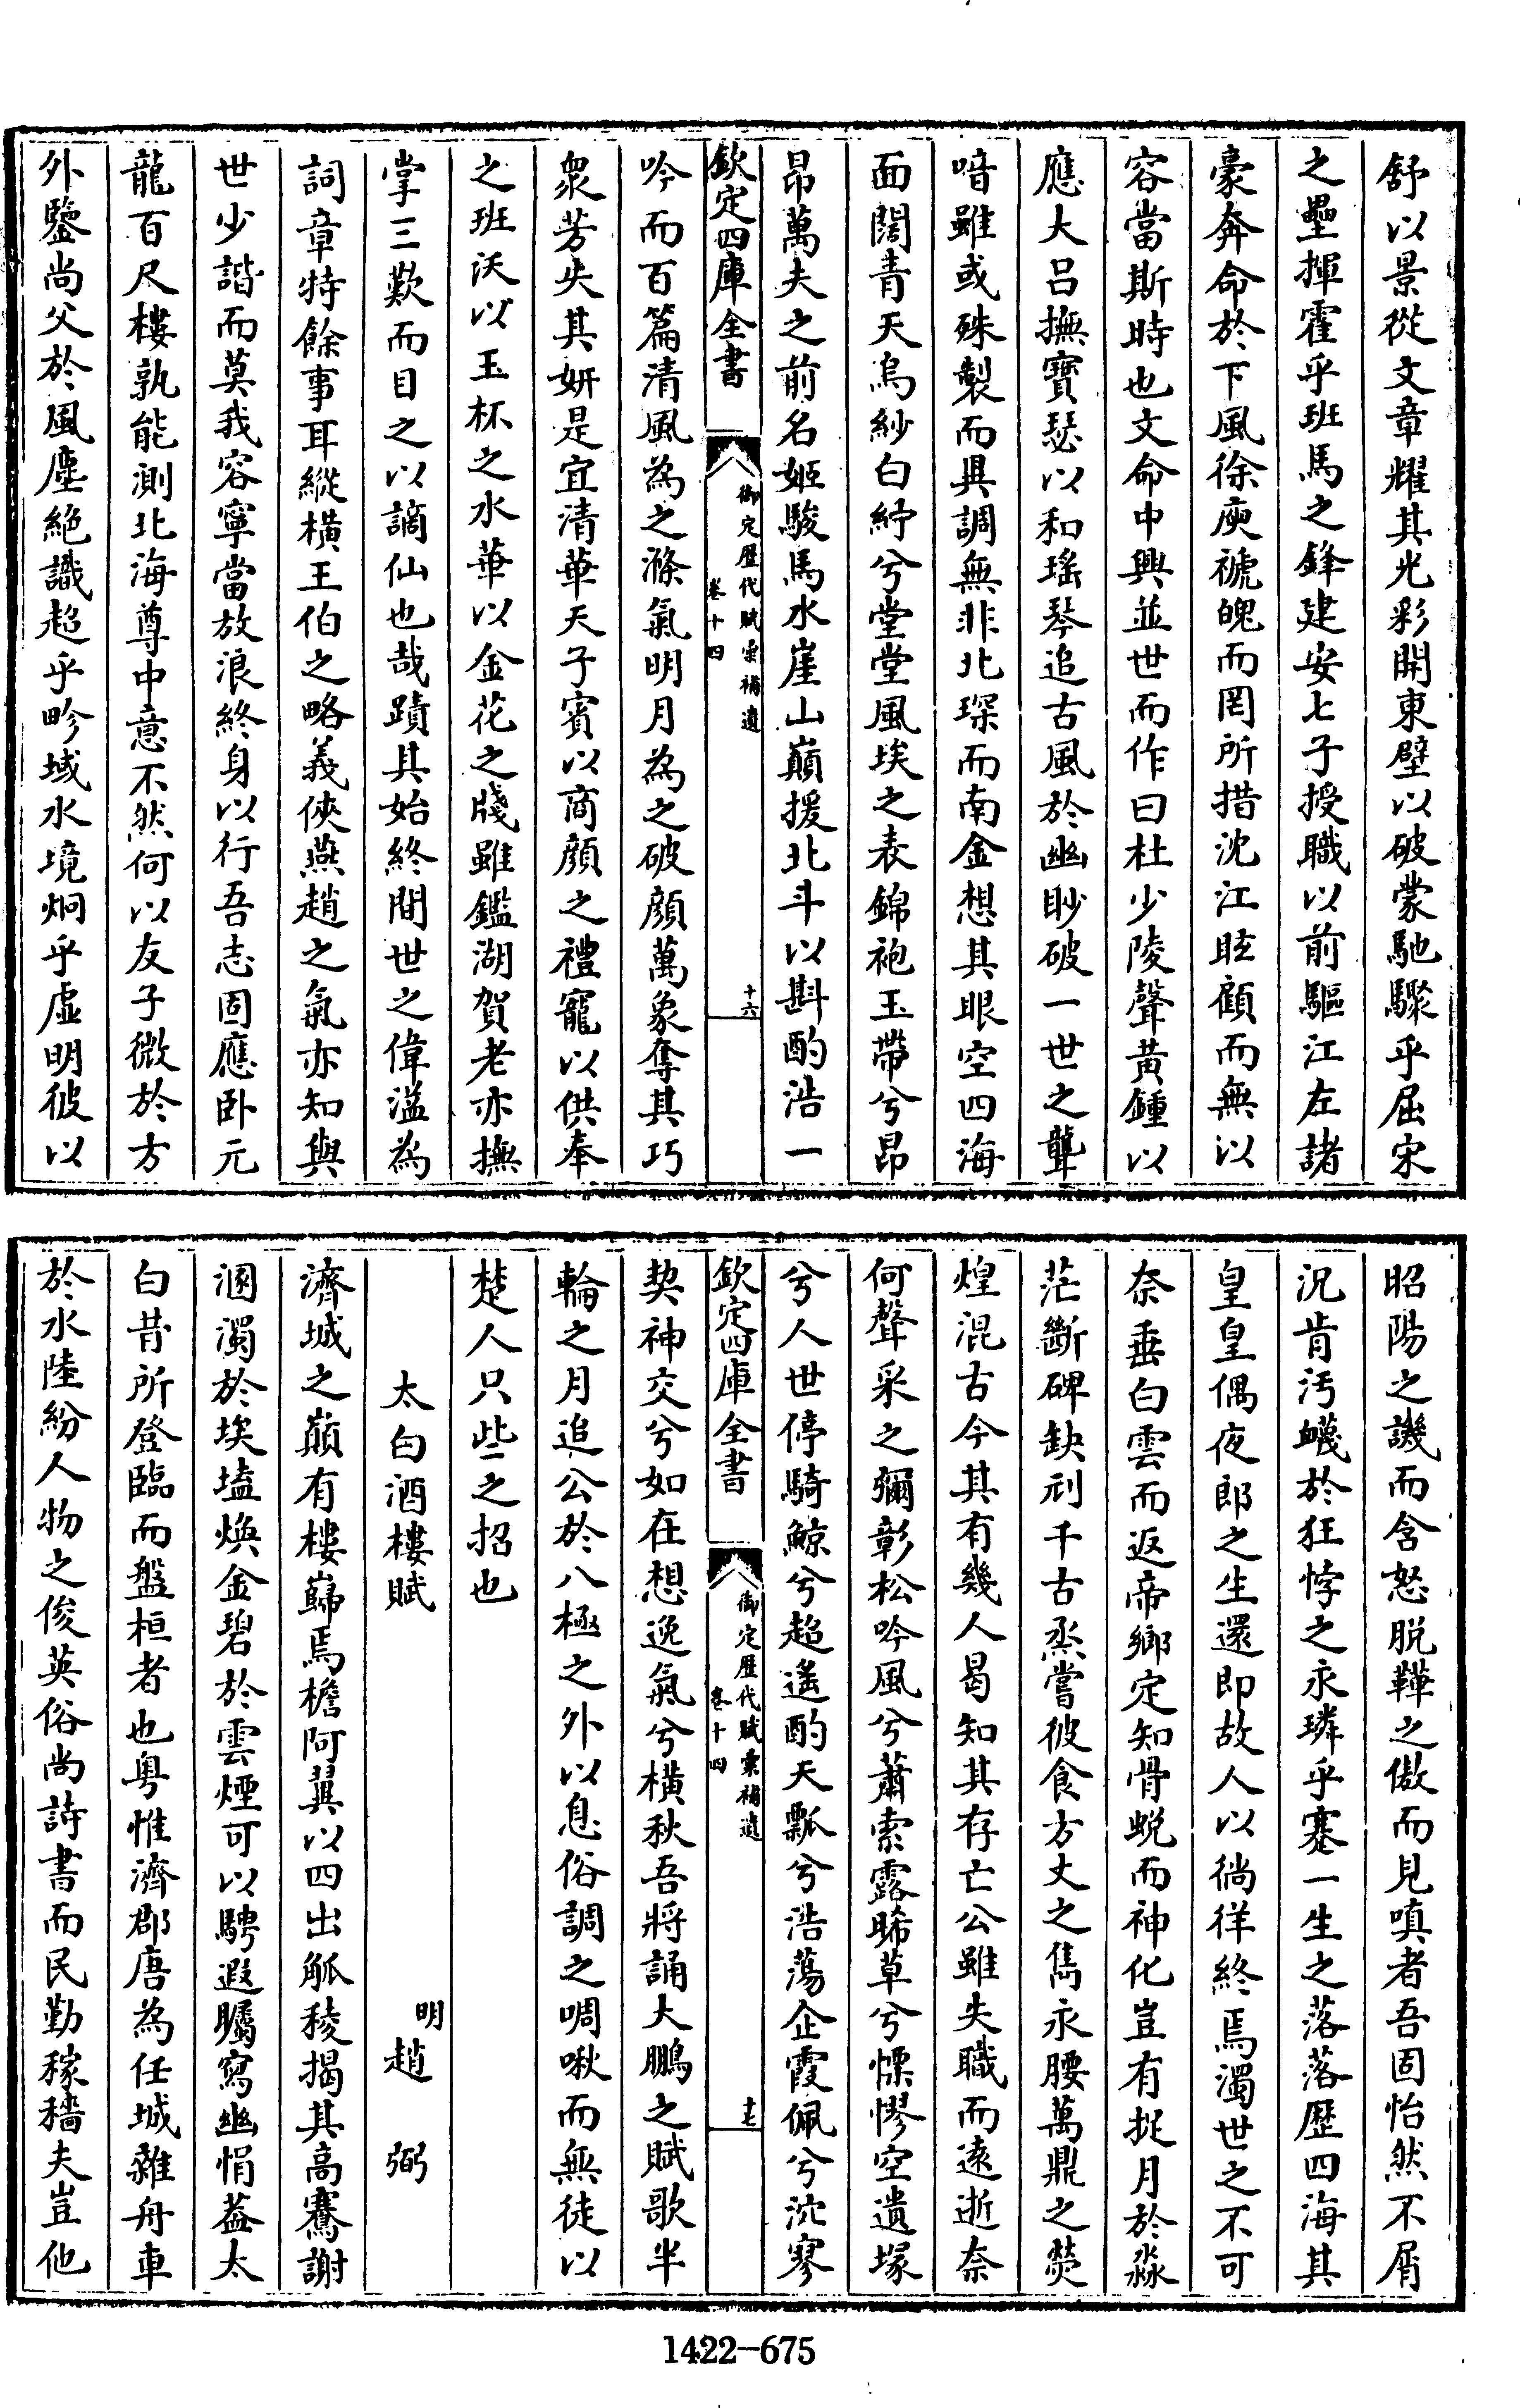 舒以景從文章耀其光彩開東壁以破蒙馳驟乎屈宋
之壘揮霍乎班馬之鋒建安七子授職以前驅江左諸
豪奔命於下風徐庾褫魄而罔所措沈江眩顧而無以
容當斯時也文命中興並世而作曰杜少陵聲黃鍾以
應大呂撫寶瑟以和瑤琴追古風於幽眇破一世之聾
喑雖或殊製而異調無非北琛而南金想其眼空四海
面闊青天烏紗白紵兮堂堂風埃之表錦袍玉帶兮昂
昂萬夫之前名姬駿馬水崖山巔援北斗以斟酌浩一
欽定四庫全書
御定歷代賦彙補遺
卷十四
十六
吟而百篇清風為之滌氣明月為之破顔萬象奪其巧
衆芳失其妍是宜清華天子賓以商顔之禮寵以供奉
之班沃以玉杯之水華以金花之牋雖鑑湖賀老亦撫
掌三歎而目之以謫仙也哉蹟其始終間世之偉溢為
詞章特餘事耳縱橫王伯之略義俠燕趙之氣亦知與
世少諧而莫我容寧當放浪終身以行吾志固應卧元
龍百尺樓孰能測北海尊中意不然何以友子微於方
外鑒尚父於風塵絶識超乎畛域水境炯乎虛明彼以
昭陽之譏而含怒脱鞾之傲而見嗔者吾固怡然不屑
況肯汚衊於狂悖之永璘乎蹇一生之落落歷四海其
皇皇偶夜郎之生還即故人以徜徉終焉濁世之不可
奈乗白雲而返帝鄉定知骨蛻而神化豈有捉月於淼
茫斷碑缺刓千古烝嘗彼食方丈之雋永腰萬鼎之熒
煌混古今其有幾人曷知其存亡公雖失職而遠逝奈
何聲采之彌彰松吟風兮蕭索露晞草兮慄慘空遺塚
兮人世停騎鯨兮超遙酌天瓢兮浩蕩企霞佩兮泬寥
欽定四庫全書
御定歷代賦彙補遺
卷十四
十七
契神交兮如在想逸氣兮橫秋吾將誦大鵬之賦歌半
輪之月追公於八極之外以息俗調之啁啾而無徒以
楚人只些之招也
太白酒樓賦
明趙弼
濟城之巔有樓巋焉檐阿翼以四出觚稜揭其高騫謝
溷濁於埃壒煥金碧於雲煙可以騁遐矚寫幽悁葢太
白昔所登臨而盤桓者也粤惟濟郡唐為任城雜舟車
於水陸紛人物之俊英俗尚詩書而民勤稼穡夫豈他
1422-675